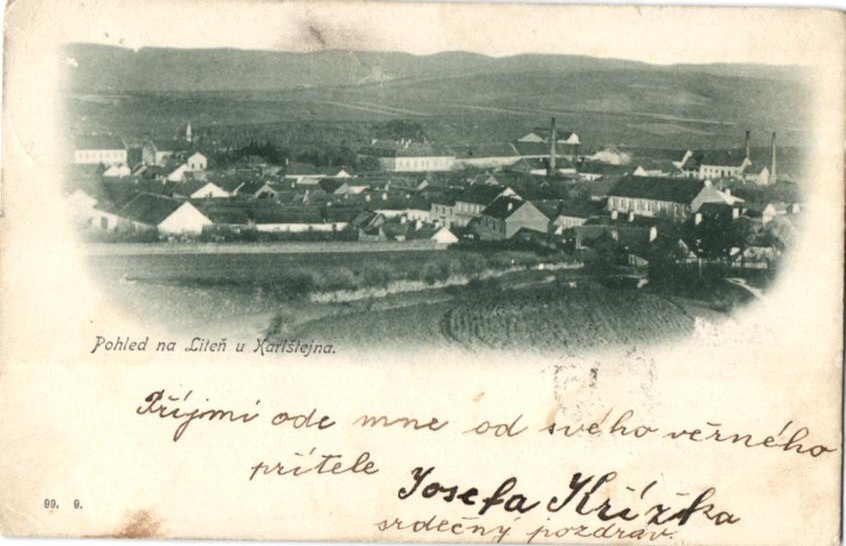 Pohled na Liteň u Karlštejna.
Příjmi ode mne od svého věrného
přítele Josefa Křížka
srdečný pozdrav.
99. 9.